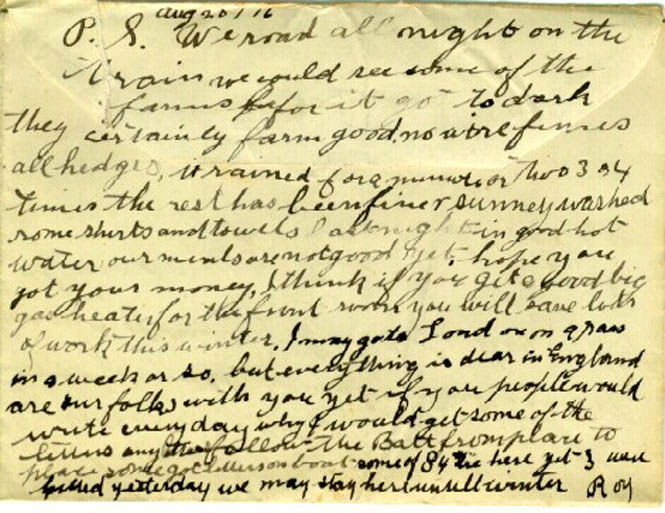 Aug 20/16
P. S. We road all night on the
train we could see some of the
farms for it got to dark
they certainly farm good. no wire fences
all hedges, it rained for a minute or two 3 or 4
times the rest has been finer sunney washed
some shirts and towels last night in good hot
water our meals are not good yet. hope you
got your money, I think if you get a good big
gas heater for the front room you will save lots
of work this winter. I may go to London on a pass
in a week or so. but everything is dear in England
are our folks with you yet if you people would
write every day why I would get some of the
letters any follow the Batt from place to
place some got letters on boat some of 84 are here yet 3 were
killed yesterday we may stay here untill winter Roy